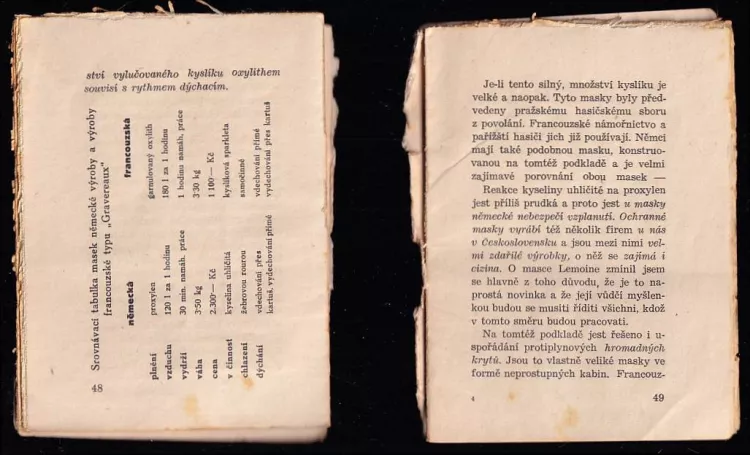 ství vylučovaného kyslíku oxylithem
souvisí s rythmem dýchacím.
Srovnávací tabulka masek německé výroby a výroby
francouzské typu „Gravereaux“
německá francouzská
plnění proxylen garnulovaný oxylith
vzduchu 120 l za 1 hodinu 180 l za 1 hodinu
vydrží 30 min. namáh. práce 1 hodinu namáh. práce
váha 3·50 kg 3·30 kg
cena 2.300·— Kč 1 100·— Kč
v činnost kyselina uhličitá kyslíková sparkleta
chlazení žebrovou rourou samočinné
dýchání vdechování přes vdechování přímé
kartuš, vydechování přímé vydechování přes kartuš
48
Je-li tento silný, množství kyslíku je
velké a naopak. Tyto masky byly před-
vedeny pražskému hasičskému sboru
z povolání. Francouzské námořnictvo a
pařížští hasiči jich již používají. Němci
mají také podobnou masku, konstruo-
vanou na tomtéž podkladě a je velmi
zajímavé porovnání obou masek —
Reakce kyseliny uhličité na proxylen
jest příliš prudká a proto jest u masky
německé nebezpečí vzplanutí. Ochranné
masky vyrábí též několik firem u nás
v Československu a jsou mezi nimi vel-
mi zdařilé výrobky, o něž se zajímá i
cizina. O masce Lemoine zmínil jsem
se hlavně z toho důvodu, že je to na-
prostá novinka a že její vůdčí myšlen-
kou budou se musiti říditi všichni, kdož
v tomto směru budou pracovati.
Na tomtéž podkladě jest řešeno i u-
spořádání protiplynových hromadných
krytů. Jsou to vlastně veliké masky ve
formě neprostupných kabin. Francouz-
4 49